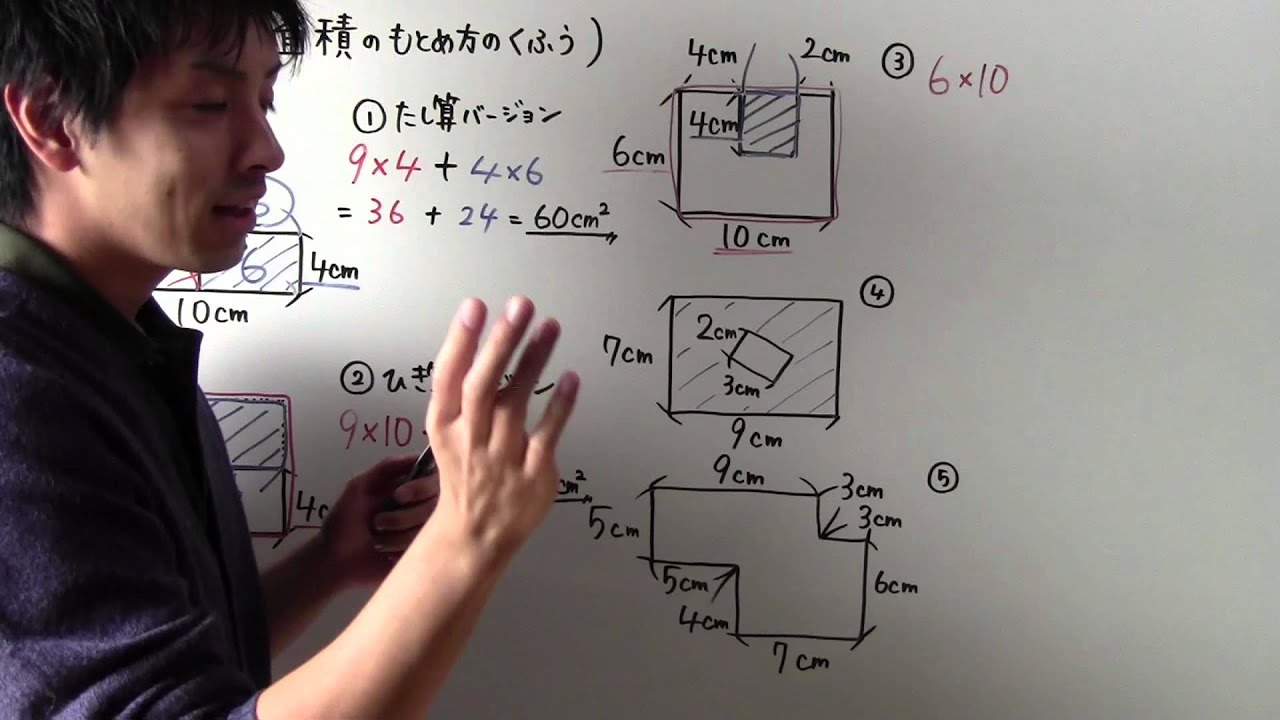 積のもとめ方のくふう)
① たし算バージョン
9×4 + 4×6
= 36 + 24 = 60cm²
6
4cm
10cm
② ひき
9×10
cm²
③ 6×10
4cm
2cm
4cm
6cm
10cm
④
2cm
7cm
3cm
9cm
⑤
9cm
3cm
3cm
5cm
5cm
6cm
4cm
7cm